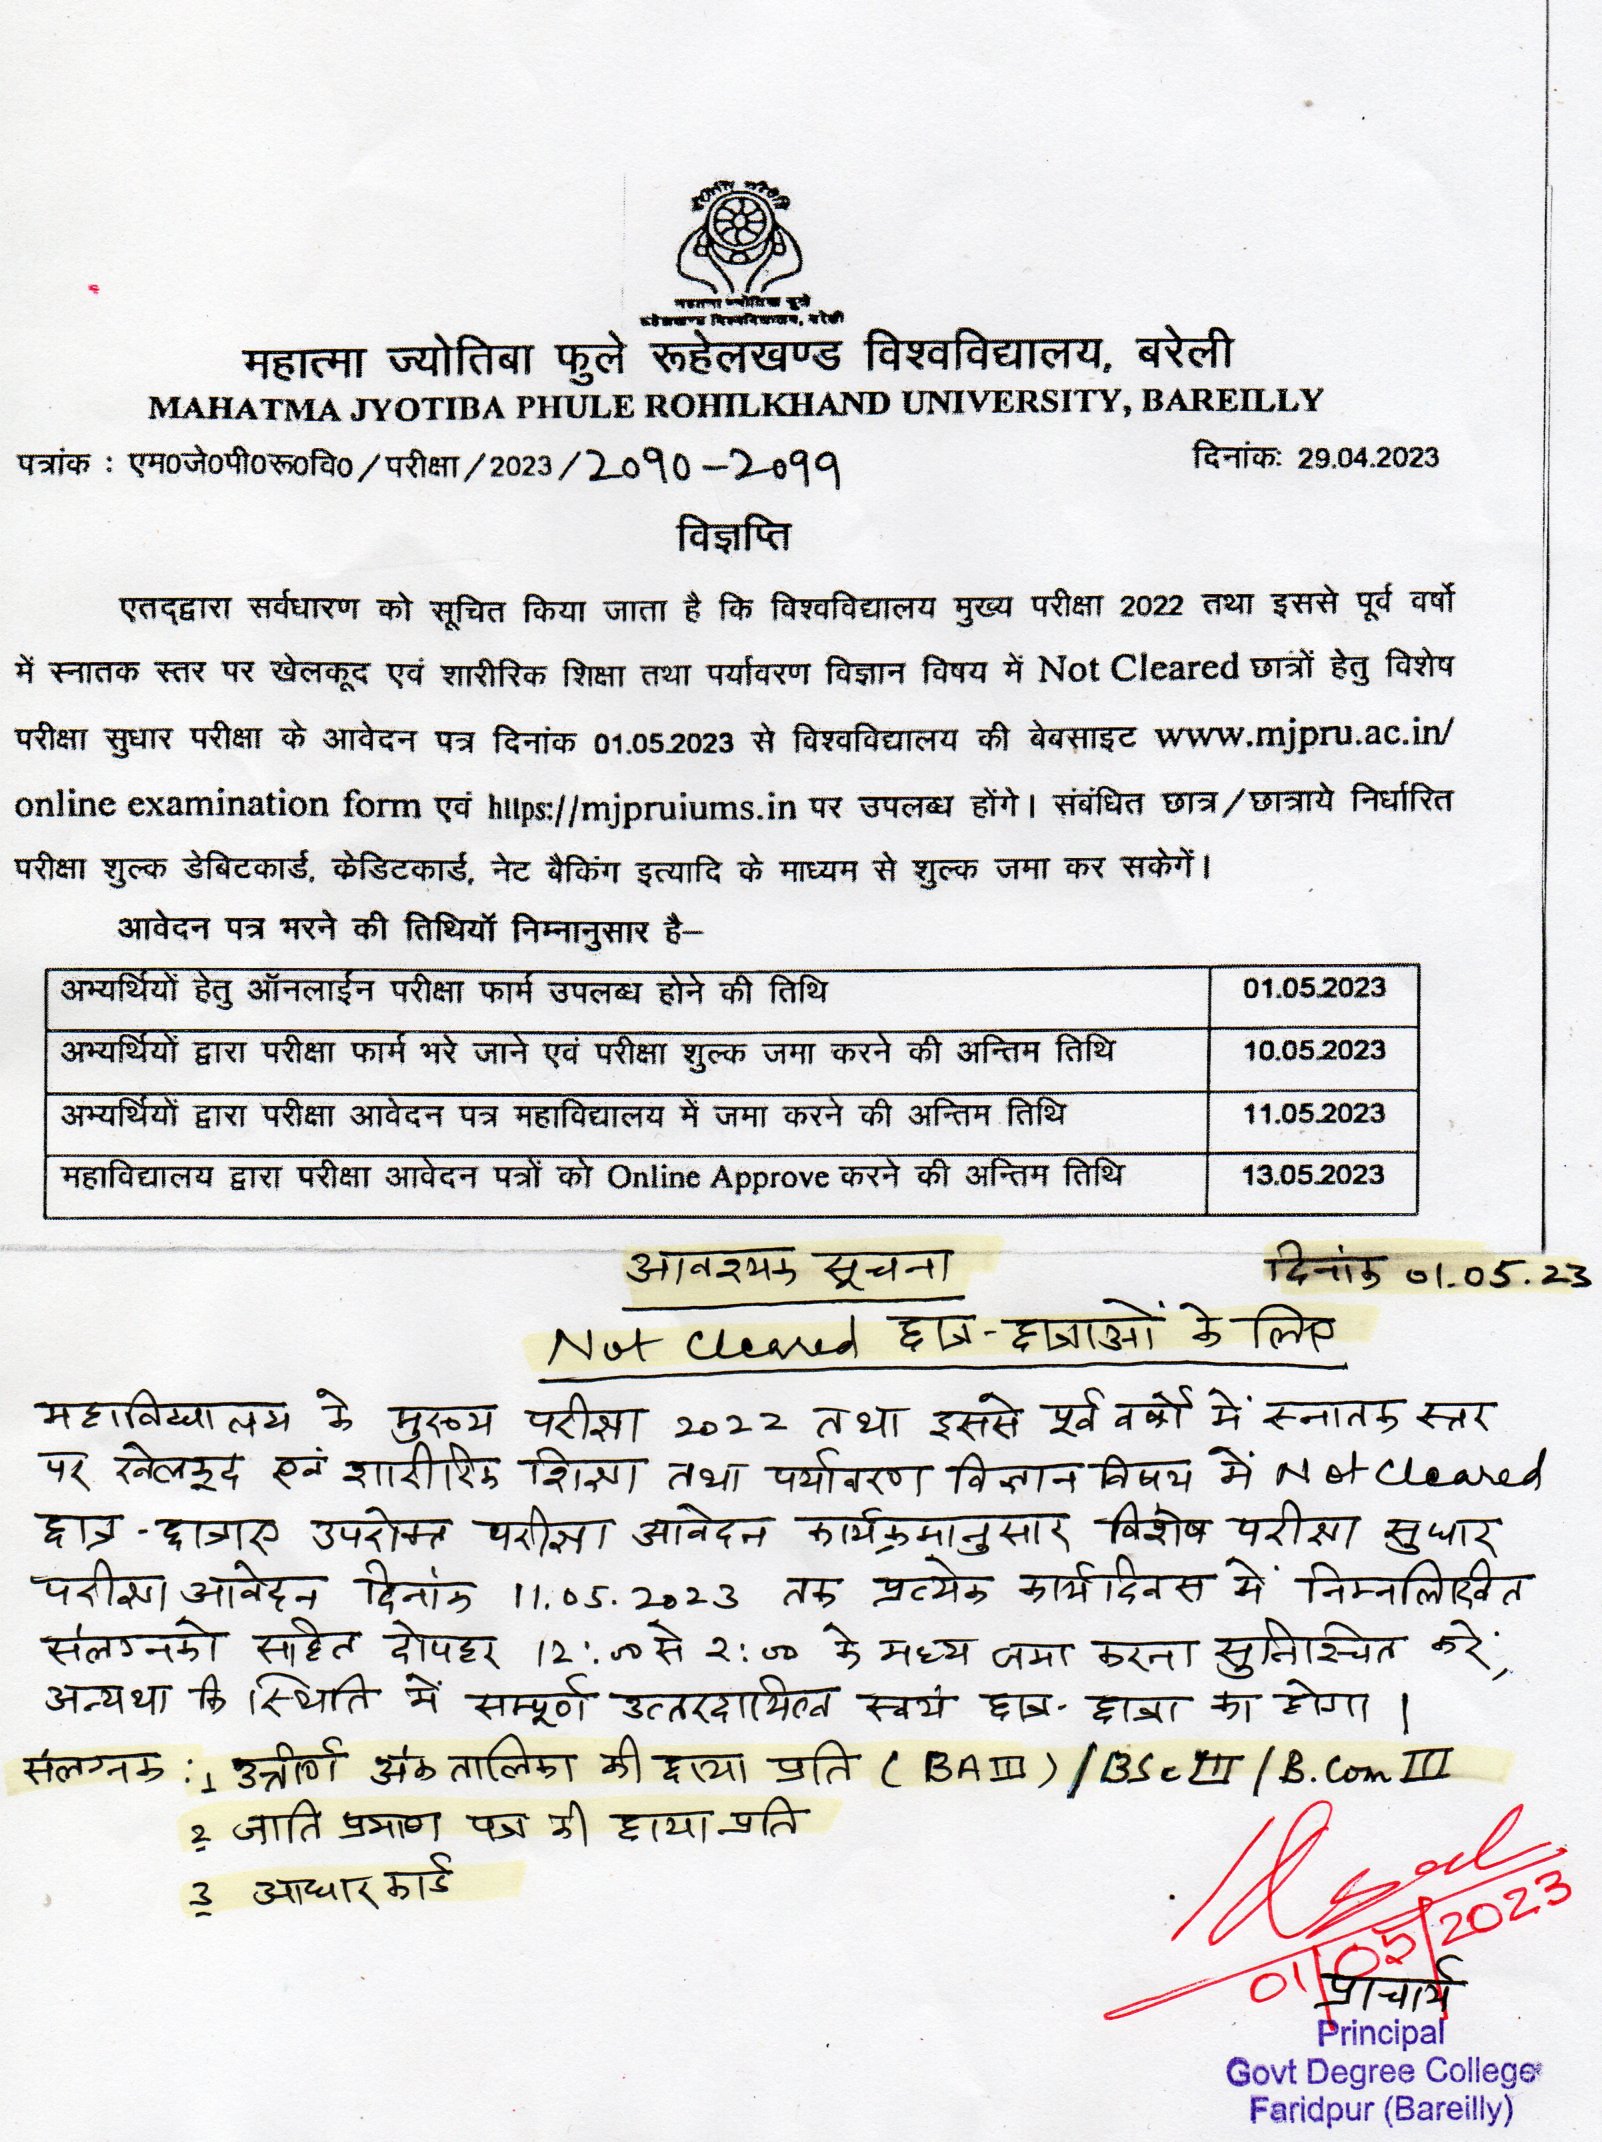 महात्मा ज्योतिबा फुले
रूहेलखण्ड विश्वविद्यालय, बरेली
महात्मा ज्योतिबा फुले रूहेलखण्ड विश्वविद्यालय, बरेली
MAHATMA JYOTIBA PHULE ROHILKHAND UNIVERSITY, BAREILLY
पत्रांक : एम0जे0पी0रू0वि0/परीक्षा/2023/2090-2099 दिनांकः 29.04.2023
विज्ञप्ति
एतद्द्वारा सर्वधारण को सूचित किया जाता है कि विश्वविद्यालय मुख्य परीक्षा 2022 तथा इससे पूर्व वर्षो
में स्नातक स्तर पर खेलकूद एवं शारीरिक शिक्षा तथा पर्यावरण विज्ञान विषय में Not Cleared छात्रों हेतु विशेष
परीक्षा सुधार परीक्षा के आवेदन पत्र दिनांक 01.05.2023 से विश्वविद्यालय की बेबसाइट www.mjpru.ac.in/
online examination form एवं https://mjpruiums.in पर उपलब्ध होंगे। संबंधित छात्र/छात्राये निर्धारित
परीक्षा शुल्क डेबिटकार्ड, केडिटकार्ड, नेट बैकिंग इत्यादि के माध्यम से शुल्क जमा कर सकेगें।
आवेदन पत्र भरने की तिथियॉ निम्नानुसार है–
अभ्यर्थियों हेतु ऑनलाईन परीक्षा फार्म उपलब्ध होने की तिथि 01.05.2023
अभ्यर्थियों द्वारा परीक्षा फार्म भरे जाने एवं परीक्षा शुल्क जमा करने की अन्तिम तिथि 10.05.2023
अभ्यर्थियों द्वारा परीक्षा आवेदन पत्र महाविद्यालय में जमा करने की अन्तिम तिथि 11.05.2023
महाविद्यालय द्वारा परीक्षा आवेदन पत्रों को Online Approve करने की अन्तिम तिथि 13.05.2023
आवश्यक सूचना दिनांक 01.05.23
Not Cleared छात्र-छात्राओं के लिए
महाविद्यालय के मुख्य परीक्षा 2022 तथा इससे पूर्व वर्षों में स्नातक स्तर
पर खेलकूद एवं शारीरिक शिक्षा तथा पर्यावरण विज्ञान विषय में Not Cleared
छात्र-छात्राए उपरोक्त परीक्षा आवेदन कार्यक्रमानुसार विशेष परीक्षा सुधार
परीक्षा आवेदन दिनांक 11.05.2023 तक प्रत्येक कार्यदिवस में निम्नलिखित
संलग्नको सहित दोपहर 12:00 से 2:00 के मध्य जमा करना सुनिश्चित करें,
अन्यथा कि स्थिति में सम्पूर्ण उत्तरदायित्व स्वयं छात्र-छात्रा का होगा।
संलग्नक : 1 उत्तीर्ण अंकतालिका की छाया प्रति (BA III) / BSc III / B.Com III
2 जाति प्रमाण पत्र की छाया प्रति
3 आधार कार्ड
01/05/2023
प्राचार्य
Principal
Govt Degree College
Faridpur (Bareilly)